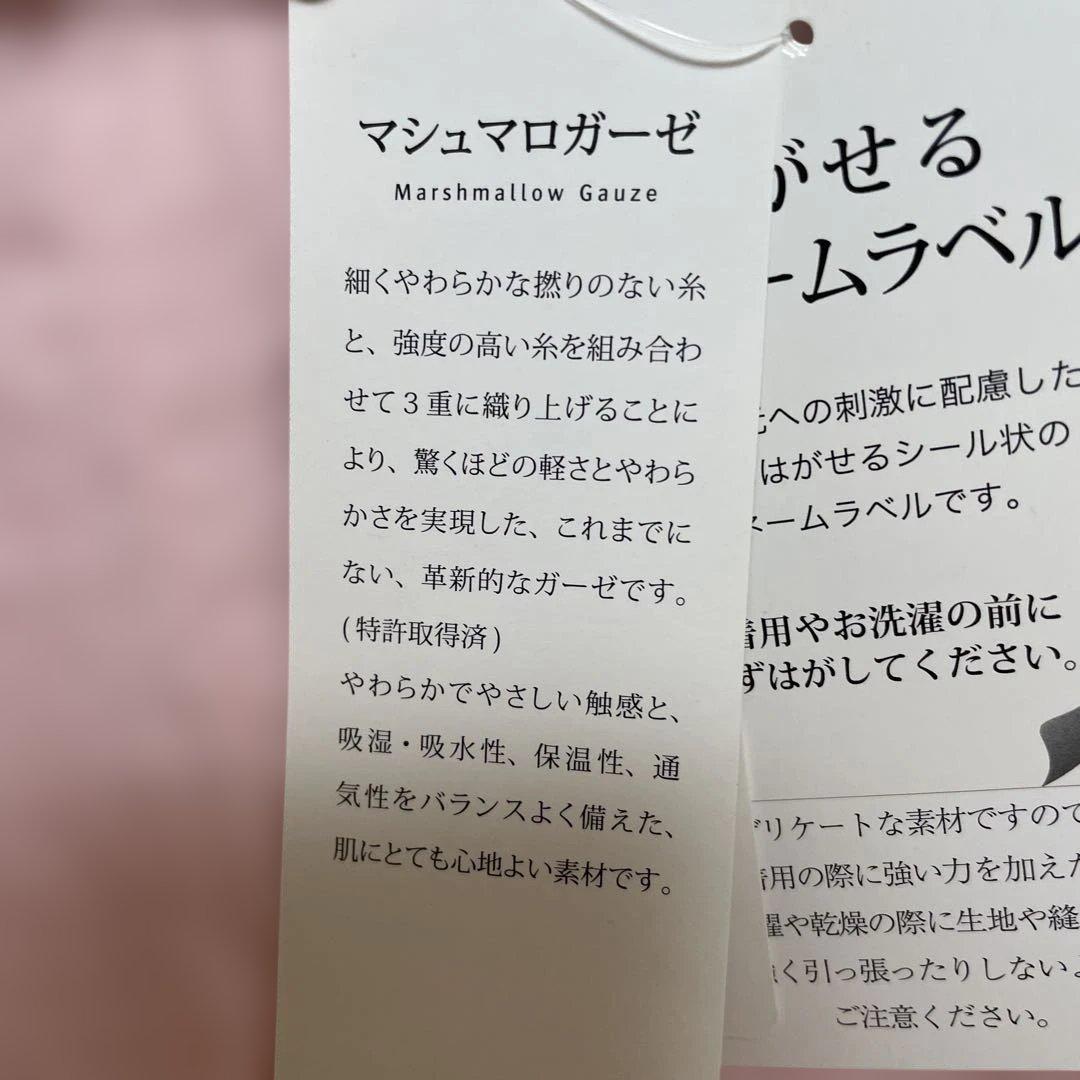 マシュマロガーゼ
Marshmallow Gauze
細くやわらかな撚りのない糸
と、強度の高い糸を組み合わ
せて3重に織り上げることに
より、驚くほどの軽さとやわら
かさを実現した、これまでに
ない、革新的なガーゼです。
(特許取得済)
やわらかでやさしい触感と、
吸湿・吸水性、保温性、通
気性をバランスよく備えた、
肌にとても心地よい素材です。
がせる
ームラベル
への刺激に配慮した
はがせるシール状の
ネームラベルです。
着用やお洗濯の前に
ずはがしてください。
デリケートな素材ですので
着用の際に強い力を加えた
濯や乾燥の際に生地や縫
強く引っ張ったりしないよ
ご注意ください。